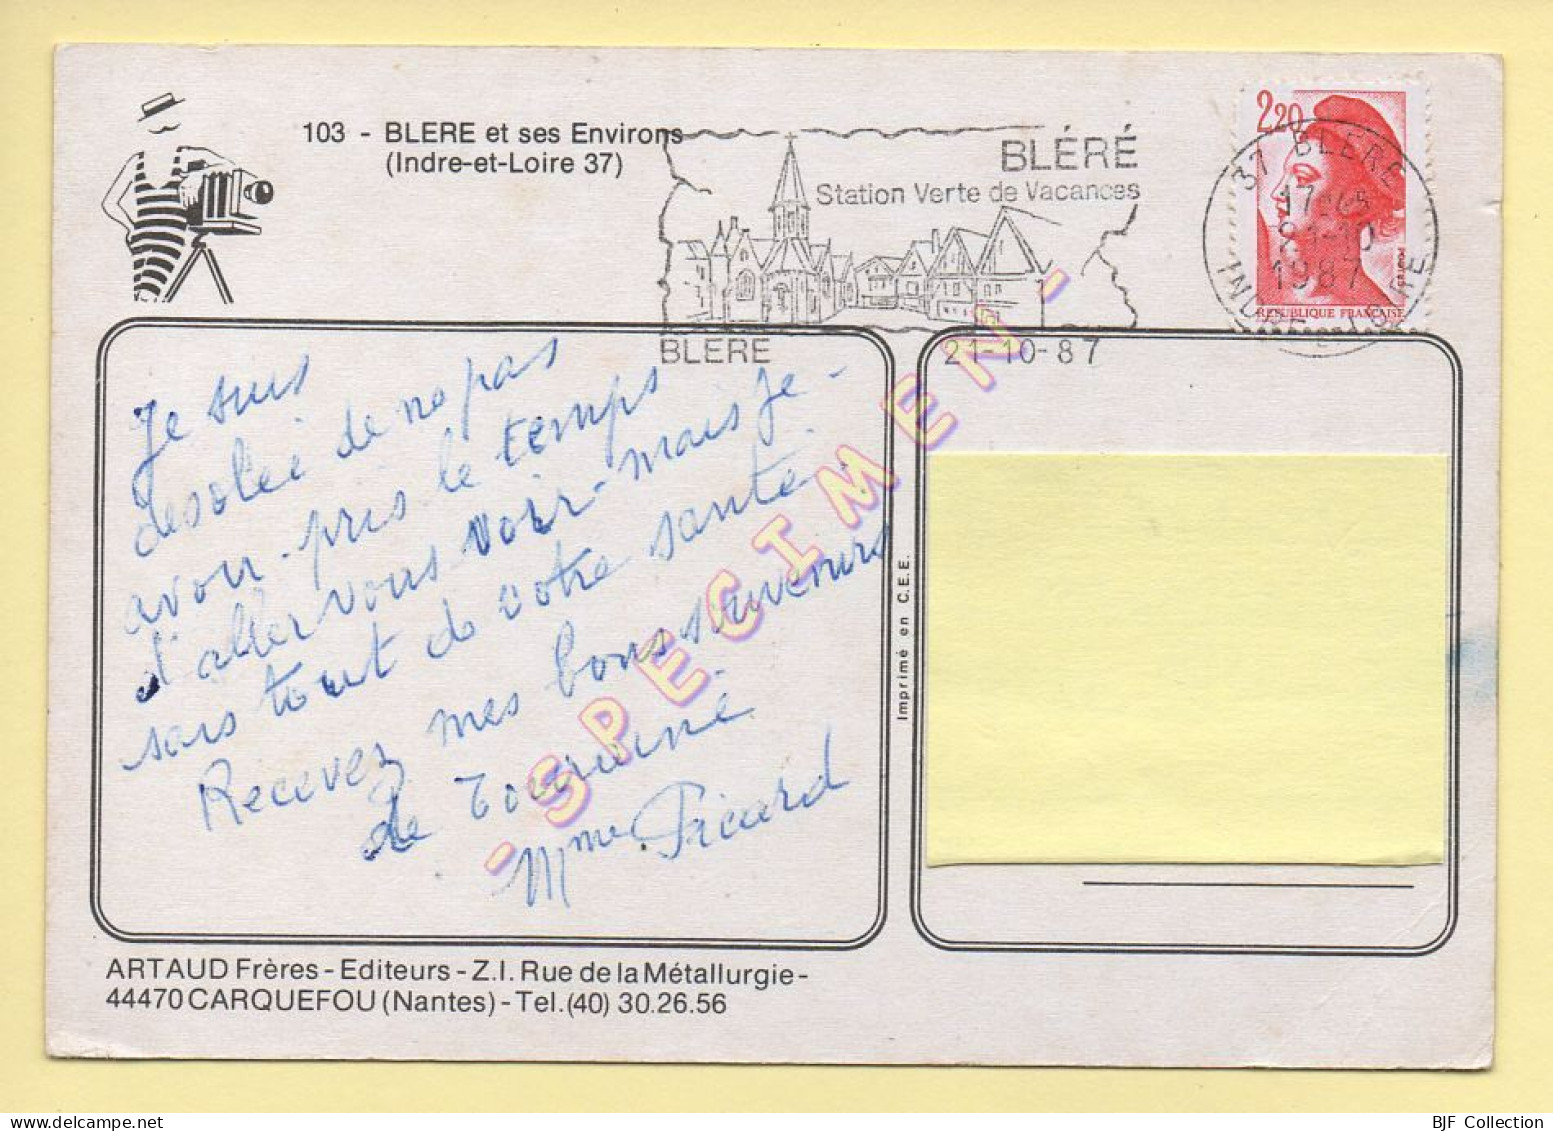 103 - BLERE et ses Environs
(Indre-et-Loire 37)
BLÉRÉ
Station Verte de Vacances
BLERE
21-10-87
2,20
37 BLERE
17H
21-10
1987
INDRE ET LOIRE
REPUBLIQUE FRANÇAISE
Je suis
desolée de ne pas
avoir pris le temps
d'aller vous voir - mais je -
sais tout de votre santé.
Recevez mes bons souvenirs
de Touraine.
Mme Picard
- SPECIMEN -
Imprimé en C.E.E.
ARTAUD Frères - Editeurs - Z.I. Rue de la Métallurgie -
44470 CARQUEFOU (Nantes) - Tel. (40) 30.26.56
BJF Collection